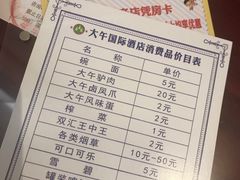 店凭房卡
大午国际酒店消费品价目表
名称 单价
碗面 5元
大午驴肉 20元
大午卤凤爪 5元
大午风味蛋 2元
榨菜 2元
双汇王中王 2元
各类烟草 10元~50元
可口可乐 5元
雪碧 5元